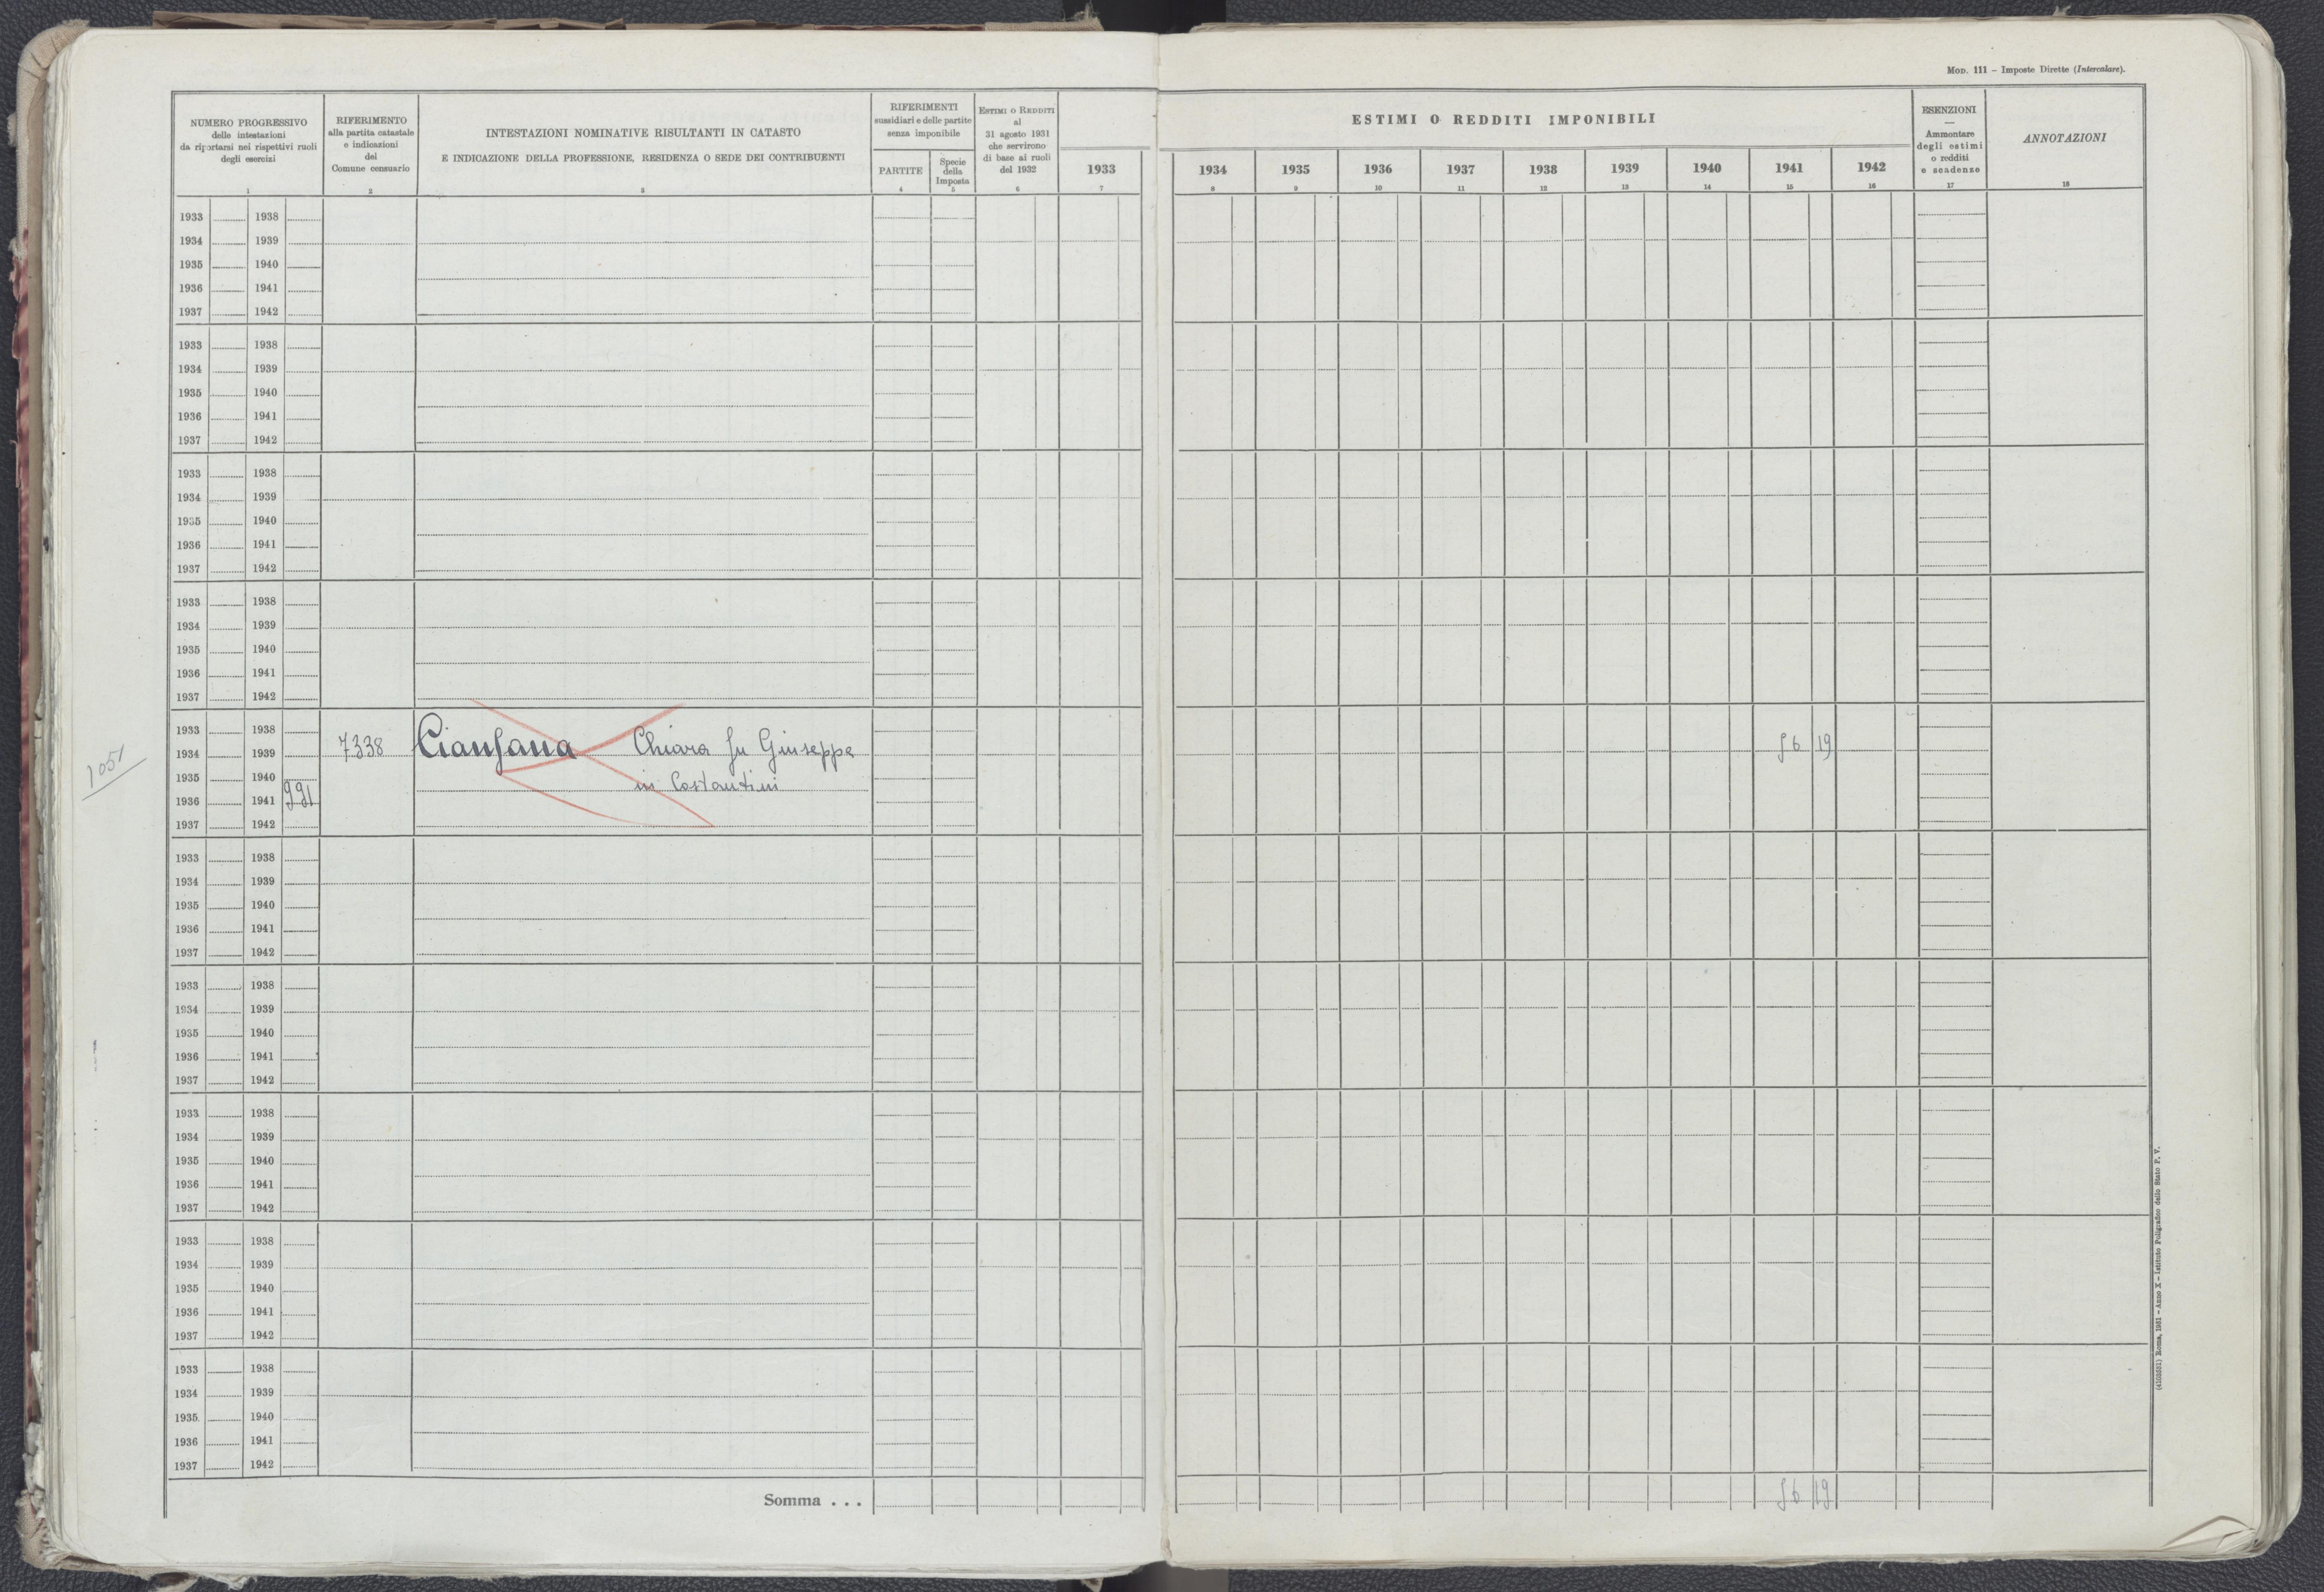 MOD. 111 – Imposte Dirette (Intercalare).
NUMERO PROGRESSIVO
delle intestazioni
da riportarsi nei rispettivi ruoli
degli esercizi
1
RIFERIMENTO
alla partita catastale
e indicazioni
del
Comune censuario
2
INTESTAZIONI NOMINATIVE RISULTANTI IN CATASTO
E INDICAZIONE DELLA PROFESSIONE, RESIDENZA O SEDE DEI CONTRIBUENTI
3
RIFERIMENTI
sussidiari e delle partite
senza imponibile
PARTITE
4
Specie
della
Imposta
5
ESTIMI O REDDITI
al
31 agosto 1931
che servirono
di base ai ruoli
del 1932
6
1933
7
ESTIMI O REDDITI IMPONIBILI
1934 1935 1936 1937 1938 1939 1940 1941 1942
8 9 10 11 12 13 14 15 16
ESENZIONI
—
Ammontare
degli estimi
o redditi
e scadenze
17
ANNOTAZIONI
18
1933 1938
1934 1939
1935 1940
1936 1941
1937 1942
1933 1938
1934 1939
1935 1940
1936 1941
1937 1942
1933 1938
1934 1939
1935 1940
1936 1941
1937 1942
1933 1938
1934 1939
1935 1940
1936 1941
1937 1942
1933 1938
1934 1939 7338 Cianfana Chiara fu Giuseppe 56 19
1935 1940 in Costantini
1051
1936 1941 991
1937 1942
1933 1938
1934 1939
1935 1940
1936 1941
1937 1942
1933 1938
1934 1939
1935 1940
1936 1941
1937 1942
1933 1938
1934 1939
1935 1940
1936 1941
1937 1942
1933 1938
1934 1939
1935 1940
1936 1941
1937 1942
1933 1938
1934 1939
1935 1940
1936 1941
1937 1942
Somma . . . 56 19
Roma, 1931 – Anno X – Istituto Poligrafico dello Stato P. V.